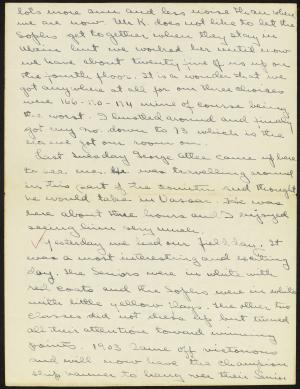 lots more sun and less noise than where
we are now. Mr. K. does not like to let the
Sophs get together when they stay in
Main but we worked her until now
we have about twenty five of us up on
the fourth floor. It is a wonder that we
got anywhere at all for our three choices
were 166-110-174 mine of course being
the worst. I hustled around and finally
got my no. down to 73 which is the
one we got our room on.
Last Tuesday George Atlee came up here
to see me. He was travelling around
in this part of the country and thought
he would take in Vassar. He was
here about three hours and I enjoyed
seeing him very much.
Yesterday we had our field day. It
was a most interesting and exciting
day. The Seniors were in white with
red coats and the Sophs were in white
with little yellow flags. The other two
classes did not dress up but turned
all their attention toward winning
points. 1903 came off victorious
and will now have the champion
ship banner to hang over their Senior